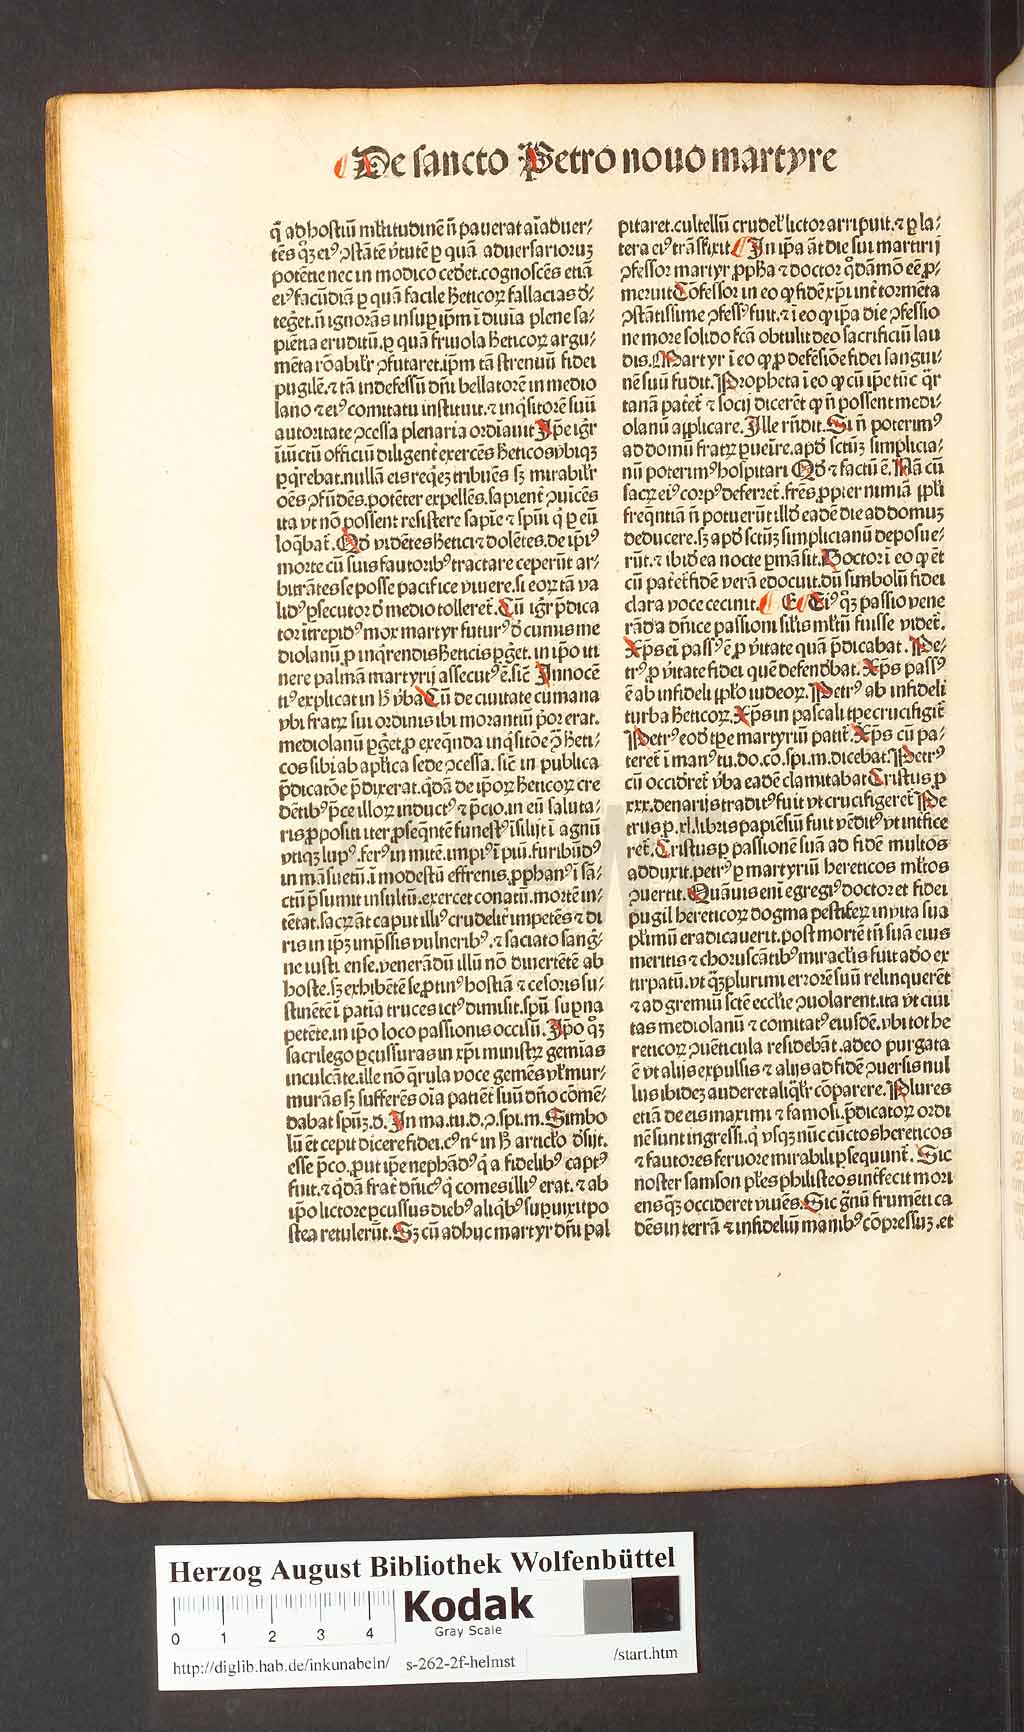 De sancto Petro nouo martyre
q̄ ad hostiū mltitudinē ñ pauerat aīaduer⸗
tēs qꝫ eiꝰ ꝯstātē v̓tutē ꝑ quā aduersarioruꝫ
potētie nec in modico cedꝫet. cognoscēs etiā
eiꝰ facūdiā ꝑ quā facile hꝫeticoꝝ fallacias d̓⸗
teg̓et. ñ ignorās insuꝑ ip̄m ī diuīa plene sa⸗
piētia eruditū. ꝑ quā friuola hꝫeticoꝝ argu⸗
mēta rōabilꝛ ꝯfutaret. ip̄m tā strenuū fidei
pugilē. ⁊ tā indefessū dn̄i bellatorē in medio
lano ⁊ eiꝰ comitatu instituit. ⁊ inq̄sitorē suū
autoritate ꝯcessa plenaria ordīauit Ip̄e igr̄
iūctū officiū diligent̄ exercēs hꝫeticos vbiqꝫ
ꝑq̄rebat. nullā eis reqꝫē tribuēs sꝫ mirabilꝛ
oēs ꝯfūdēs. potēter expellēs. sapient̄ ꝯuicēs
ita vt nō possent resistere sapīe ⁊ sp̄ui q̄ ꝑ eū
loq̄bat̄. Qd̓ vidētes hꝫetici ⁊ dolētes. de ip̄iꝰ
morte cū suis fautoribꝰ tractare ceperūt ar⸗
bitrātes se posse pacifice viuere. si eoꝝ tā va
lidꝰ ꝑsecutor d̓ medio tolleret̄. Cū igr̄ p̄dica
tor ītrepidꝰ mox martyr futurꝰ d̓ cumis me
diolanū ꝓ inq̄rendis hꝫeticis ꝑg̓et. in ip̄o iti
nere palmā martyrij assecutꝰ ē. sic̄ Innocē
tiꝰ explicat in hꝫ v̓ba Cū de ciuitate cumana
vbi fratꝝ sui ordinis ibi morantiū p̄or erat.
mediolanū ꝑg̓et. ꝓ exeq̄nda inq̄sitōe ꝯ̄ hꝫeti⸗
cos sibi ab aplica sede ꝯcessa. sic̄ in publica
p̄dicatōe p̄dixerat. qd̓ā de ip̄oꝝ hꝫeticoꝝ cre
dētibꝰ p̄ce illoꝝ inductꝰ ⁊ p̄cio. in eū saluta⸗
ris ꝓpositi iter ꝓseq̄ntē funestꝰ īsilijt ī agnū
vtiqꝫ lupꝰ. ferꝰ in mitē. impiꝰ ī piū. furibūdꝰ
in māsuetū. ī modestū effrenis. ꝓphanꝰ ī sā⸗
ctū p̄sumit insultū. exercet conatū. mortē in⸗
tētat. sacꝝ āt caput illiꝰ crudelit̄ impetēs ⁊ di
ris in ip̄ꝫ imp̄ssis vulneribꝰ. ⁊ saciato sang̓⸗
ne iusti ense. venerādū illū nō diuertētē ab
hoste. sꝫ exhibētē se ꝓtinꝰ hostiā ⁊ cesoris su⸗
stinētē ī patīa truces ictꝰ dimisit. sp̄ū suꝑna
petēte. in ip̄o loco passionis occisū. Ip̄o qꝫ
sacrilego ꝑcussuras in xp̄i ministꝝ gemīas
inculcāte. ille nō q̄rula voce gemēs vl̓ mur⸗
murās sꝫ sufferēs oīa patiēt̄ suū dn̄o cōmē⸗
dabat sp̄uꝫ. d. In ma. tu. d. ꝯ. spi. m. Simbo
lū ēt cepit dicere fidei. cꝰ nc̄ in hꝫ artic̓lo d̓sijt.
esse p̄co. ꝓut ip̄e nephādꝰ q̄ a fidelibꝰ captꝰ
fuit. ⁊ qd̓ā frat̄ dn̄icꝰ q̄ comes illiꝰ erat. ⁊ ab
ip̄o lictore ꝑcussus diebꝰ aliq̄bꝰ suꝑuixit po
stea retulerūt. Sꝫ cū adhuc martyr dn̄i pal
pitaret. cultellū crudel̓ lictor arripuit. ⁊ ꝑ la⸗
tera eiꝰ trāsfixit In ip̄a āt die sui martirij
ꝯfessor martyr ꝓph̄a ⁊ doctor qd̓āmō eē ꝓ⸗
meruit Cōfessor in eo ꝙ fidē xp̄i int̄ tormēta
ꝯstātissime ꝯfessꝰ fuit. ⁊ ī eo ꝙ ip̄a die ꝯfessio
ne more solido fc̄a obtulit deo sacrificiū lau
dis. Martyr ī eo ꝙ ꝓ defēsiōe fidei sangui⸗
nē suū fudit. Propheta ī eo ꝙ cū ip̄e tūc q̄r
tanā patet̄ ⁊ socij dicerēt ꝙ ñ possent medi⸗
olanū applicare. Ille rn̄dit. Si ñ poterimꝰ
ad domū fratꝝ ꝑueīre. apd̓ sctūꝫ simplicia⸗
nū poterimꝰ hospitari Qd̓ ⁊ factū ē. Nā cū
sacꝝ eiꝰ corpꝰ deferret̄. frēs ꝓpter nimiā ppli
freq̄ntiā ñ potuerūt illd̓ eadē die ad domuꝫ
deducere. sꝫ apd̓ sctūꝫ simplicianū deposue⸗
rūt. ⁊ ibid̓ ea nocte ꝑmāsit. Doctor ī eo ꝙ ēt
cū patet̄ fidē verā edocuit. dū simbolū fidei
clara voce cecinit. Eiꝰ qꝫ passio vene
rāda dn̄ice passioni silis mltū fuisse videt̄.
Xp̄s ei passꝰ ē ꝓ v̓itate quā p̄dicabat. Pe⸗
trꝰ ꝓ v̓itate fidei quē defendꝫbat. Xp̄s passꝰ
ē ab infideli pplo iudeoꝝ. Petrꝰ ab infideli
turba hꝫeticoꝝ. Xp̄s in pascali tꝑe crucifigit̄
Petrꝰ eod̓ tꝑe martyriū patit̄. Xp̄s cū pa⸗
teret̄ ī manꝰ tu. do. cō. spi. m. dicebat. Petrꝰ
cū occidꝫret̄ v̓ba eadē clamitabat Cristus ꝓ
xxx. denarijs traditꝰ fuit vt crucifigeret̄ Pe
trus ꝓ. xl. libris papiēsiū fuit vēditꝰ vt int̄fice
ret̄. Cristus ꝑ passionē suā ad fidē multos
adduxit. petrꝰ ꝑ martyriū hereticos mltos
ꝯuertit. Quāuis eni egregiꝰ doctor et fidei
pugil hereticoꝝ dogma pestifeꝝ in vita sua
pl̓imū eradicauerit. post mortē tn̄ suā eius
meritis ⁊ choruscātibꝰ miraclis fuit adeo ex
tirpatū. vt qꝫplurimi errorē suū relinquerēt
⁊ ad gremiū scte eccl̓ie ꝯuolarent. ita vt ciui
tas mediolanū ⁊ comitatꝰ eiusdē. vbi tot he
reticoꝝ ꝯuēticula residebāt. adeo purgata
ē vt alijs expulsis ⁊ alijs ad fidē ꝯuersis nul
lus ibideꝫ auderet aliq̄lr̄ cōparere. Plures
etiā de eis maximi ⁊ famosi. p̄dicatoꝝ ordi
nē sunt ingressi. q̄ vsqꝫ nūc cūctos hereticos
⁊ fautores feruore mirabili ꝑsequunt̄. Sic
noster samson pl̓es philisteos int̄fecit mori
ens qꝫ occideret viuēs. Sic g̓nū frumēti ca
dēs in terrā ⁊ infideliū manibꝰ cōpressuꝫ. et
Herzog August Bibliothek Wolfenbüttel
Kodak
Gray Scale
0 1 2 3 4
http://diglib.hab.de/inkunabeln/ s-262-2f-helmst /start.htm